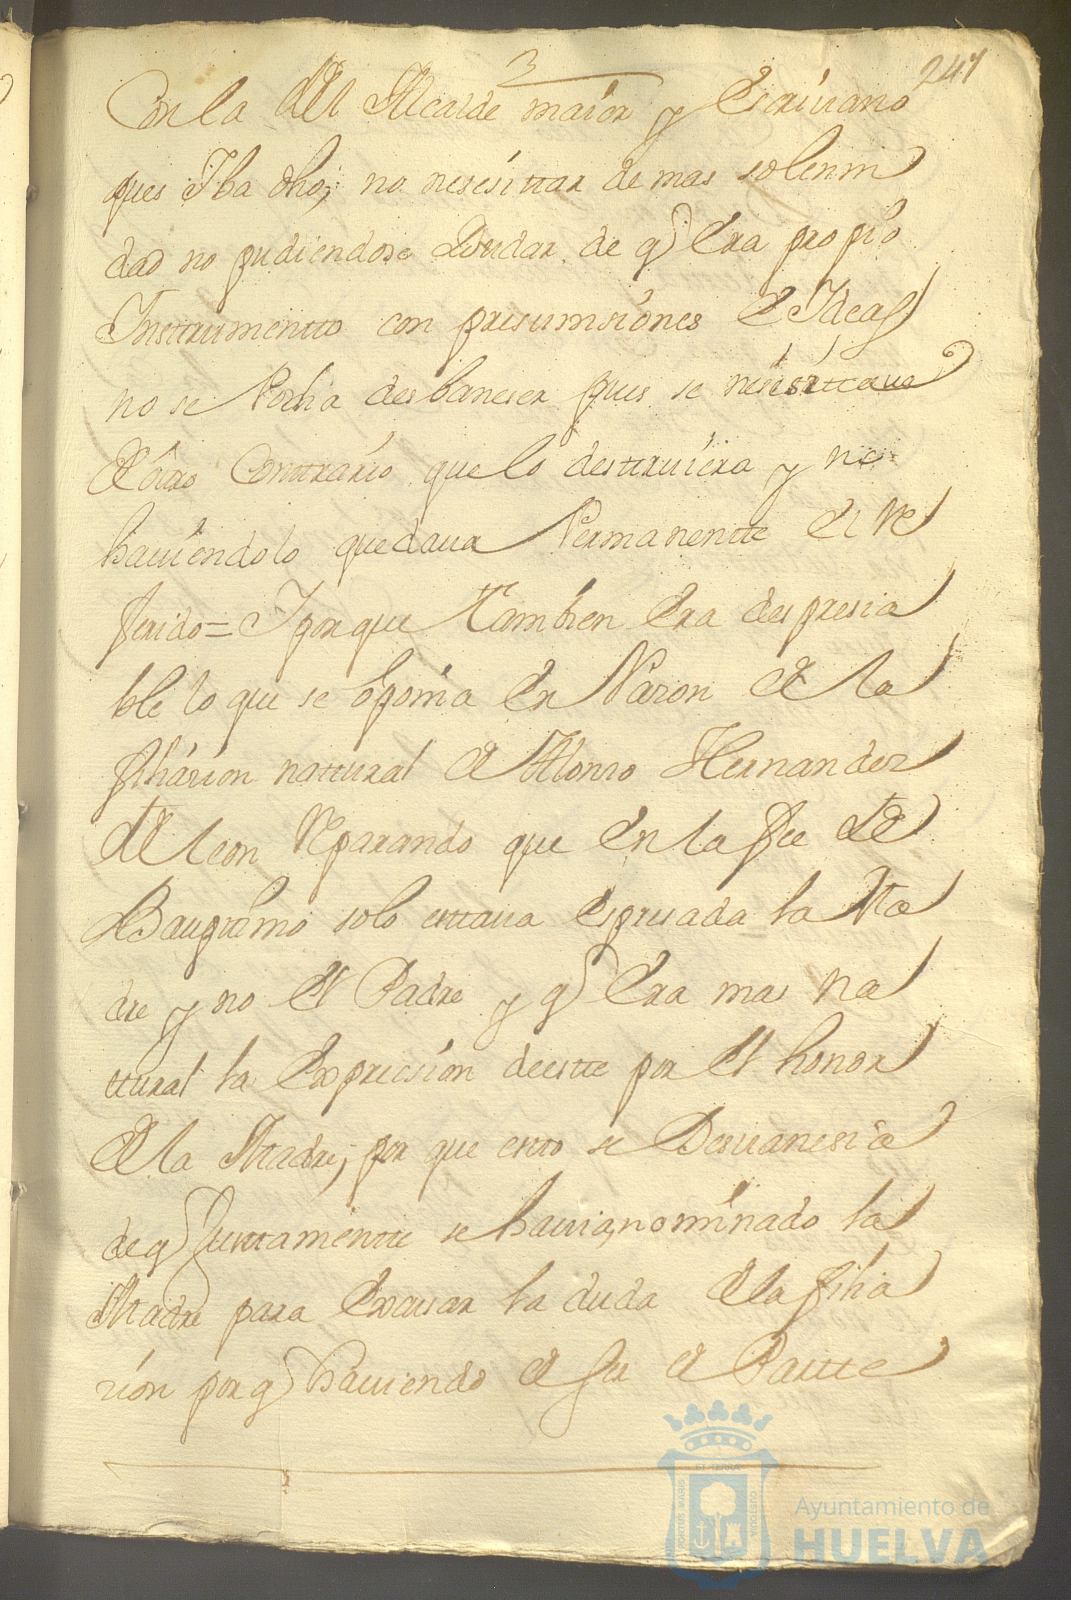 3
247
Con la del Alcalde maior y Escriuano
pues Iba dho, no nesesittar de mas solemni
dad no pudiendose Dudar de q era propio
Instrumentto con presumsiones e Ideas
no se Podia desbaneser pues se nesesittaua
de otro Conttrario que lo desttruiera y no
hauiendolo quedaua Permanentte el Re
ferido = I porque Tambien Era despresia
ble lo que se oponia en Razon de la
filiasion nattural de Alonso Hernandez
de leon Reparando que en la fee de
Bauptismo solo esttaua espresada la Ma
dre y no el Padre y q Era mas na
ttural la Expresion de estte por el honor
de la Madre, por que estto se Desuanesia
de q Juntamentte se hauia nominado la
Madre para Excusar la duda de la filia
sion por q hauiendo de ser de Partte
Ayuntamiento de
HUELVA